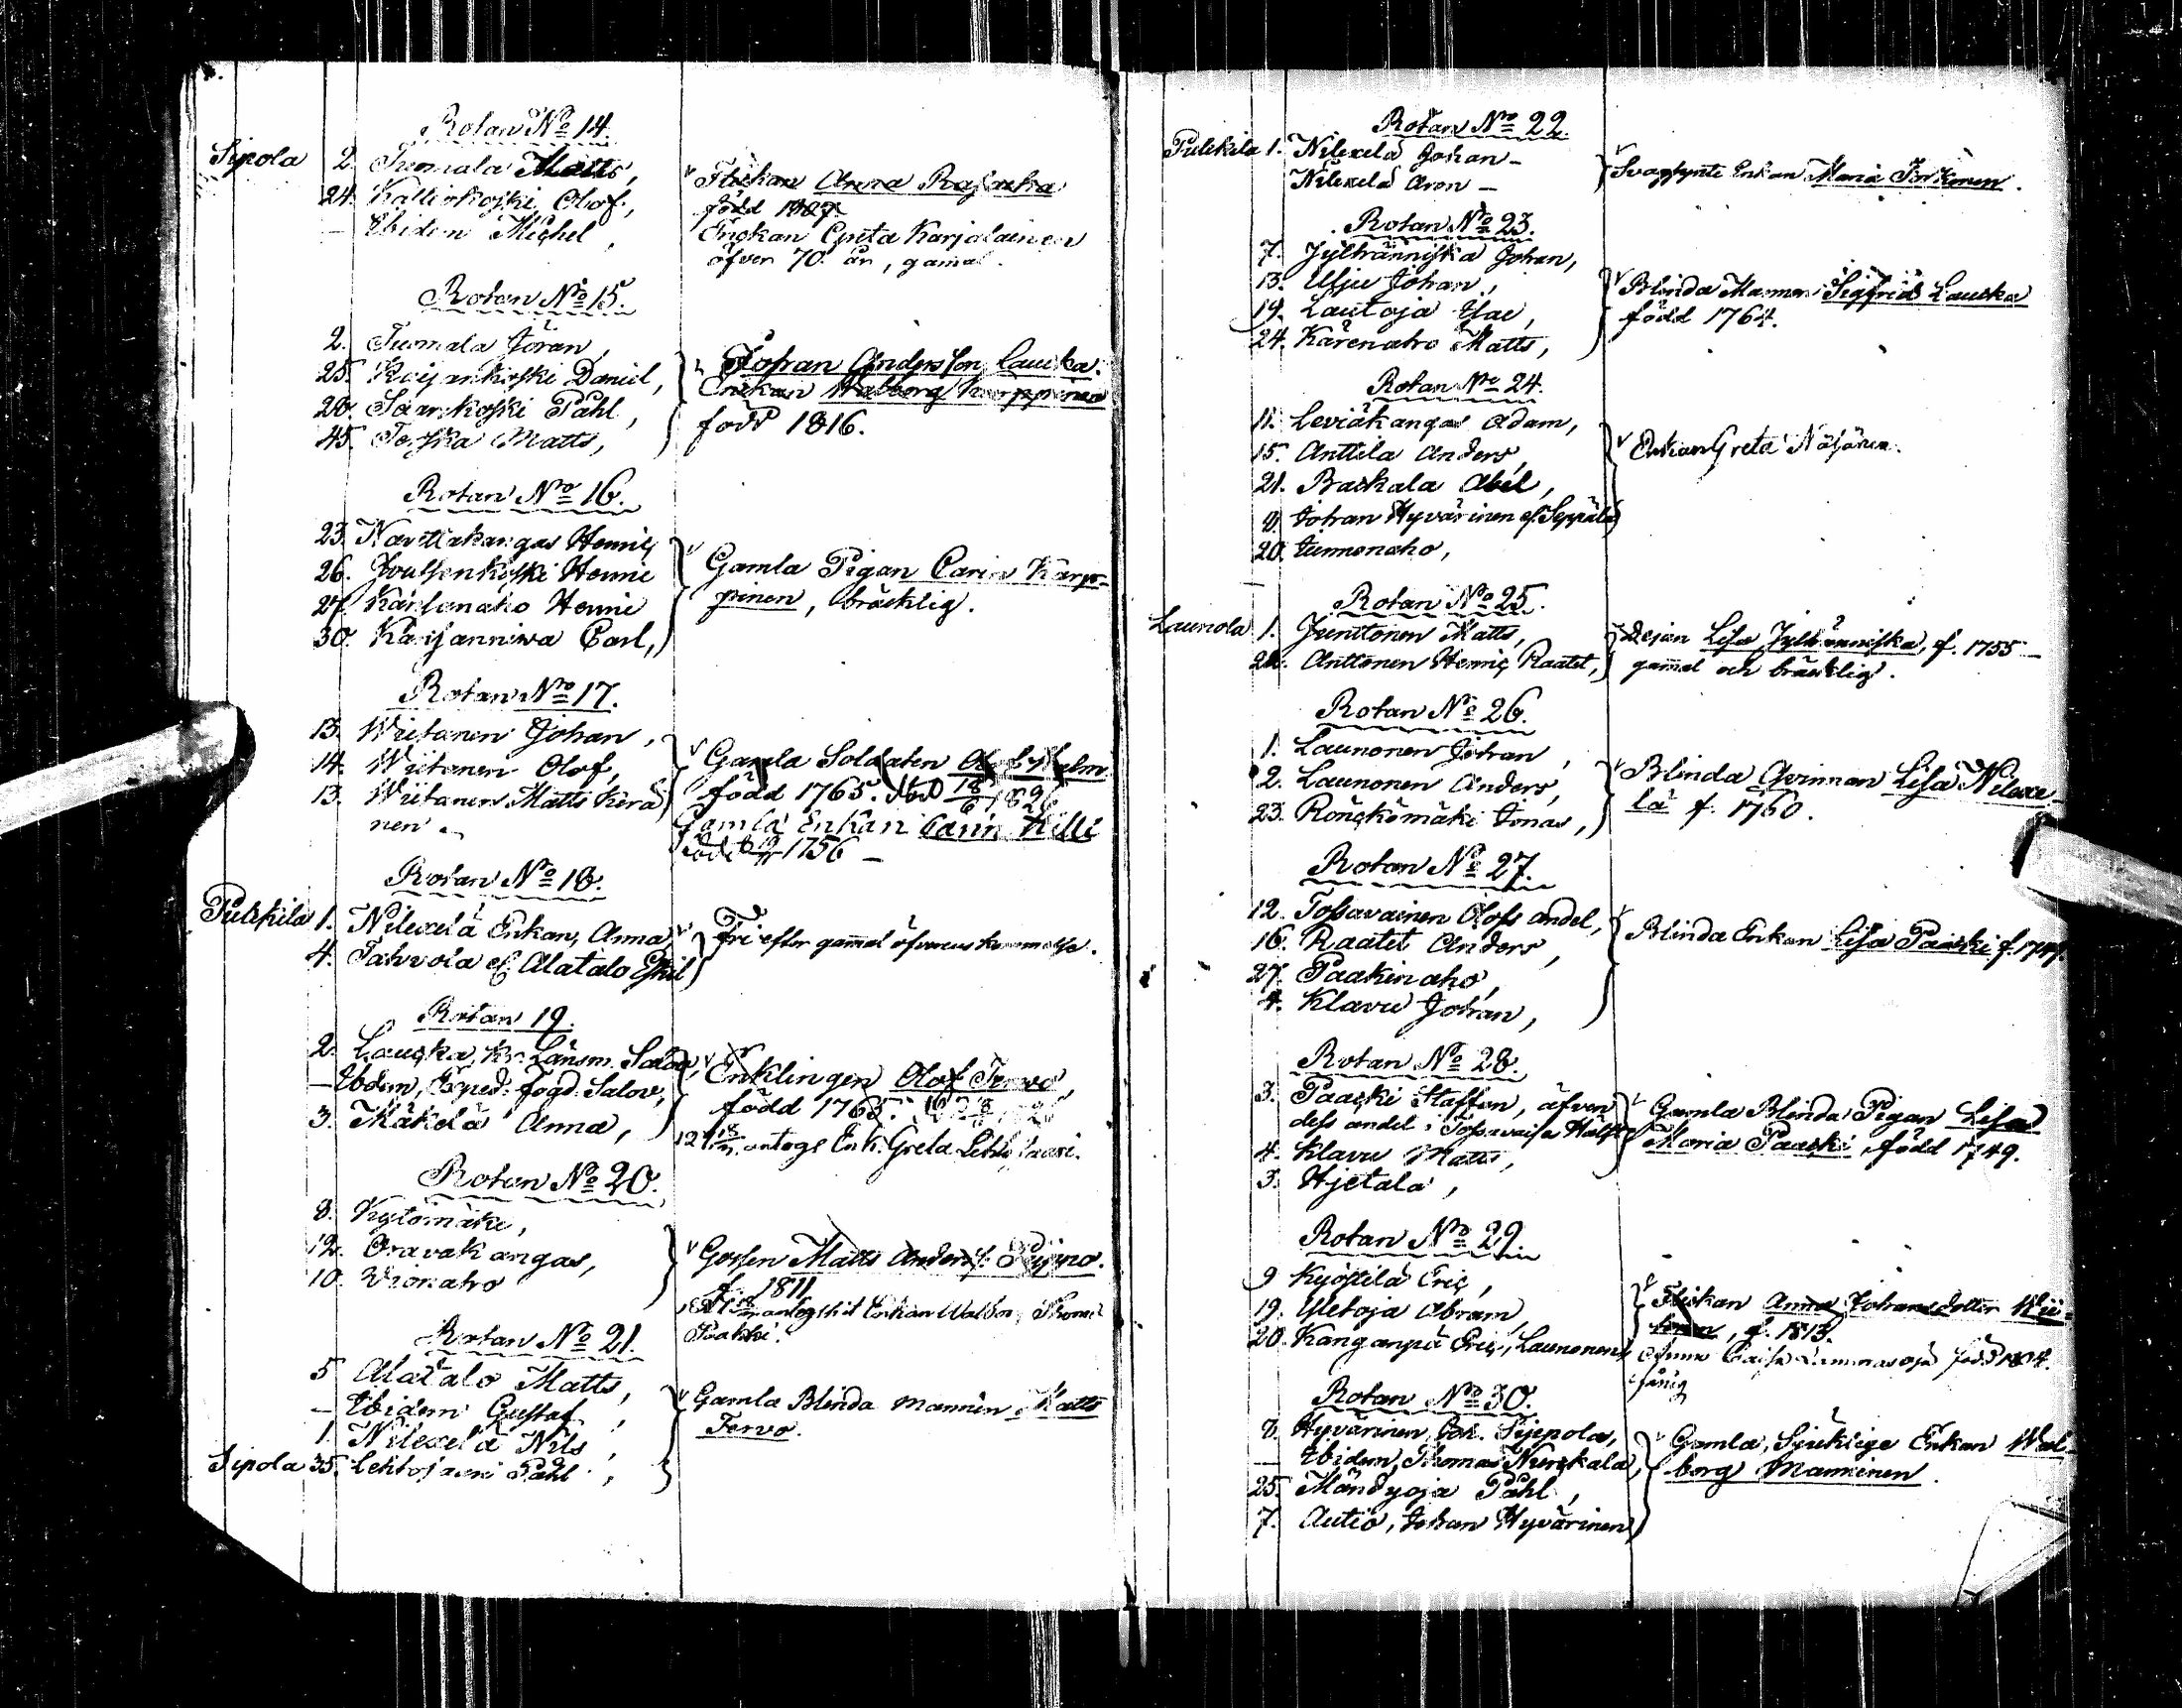 Rotan No 14.
Sipola 2. Tuomala Matts,
24. Kallinkoski Olof,
— Ibidem Michel,
Flickan Anna Rajanka
född 1827.
Enckan Greta Karjalainen
öfver 70 år, gamal.
Rotan No 15.
2. Tuomala Jöran,
25. Kaijankoski Daniel,
28. Saarikoski Påhl,
45. Teriska Matts,
Johan Andersson Laucka.
Enckan Walborg Karppinen
född 1816.
Rotan No 16.
23. Navettakangas Henric
26. Joutsenkoski Henric
27. Kärsänaho Henric
30. Karjanniwa Carl,
Gamla Pigan Carin Karp-
pinen, bräcklig.
Rotan No 17.
13. Wiitanen Johan,
14. Wiitanen Olof,
13. Wiitanen Matts Kerä
nen
Gamla Soldaten
född 1765. död 18/6 182
Gamla Enkan Carin Killi
född 1756 —
Rotan No 18.
Pulkkila 1. Nilexelä Enkan, Anna
4. Tahvola & Alatalo Eskil
Fri efter gammal öfverenskommelse.
Rotan 19.
2. Laucka, Kr. Länsm. Salov,
— Ibdem, Exped. Fogd. Salov,
3. Mäkelä Anna,
Enklingen Olof Tervo,
född 1765.
antogs Enk. Greta Lehtosaari.
Rotan No 20.
8. Kytömäki,
12. Oravakangas,
10. Wionaho
Gossen Matts Anders:
f. 1811
antogs hit Enkan Walbor Thomas
Paakki.
Rotan No 21.
5 Alatalo Matts,
— Ibidem Gustaf,
1. Nilexelä Nils,
Sipola 35. Lehtosaari Påhl,
Gamla Blinda mannen Matts
Tervo.
Rotan No 22.
Pulkkila 1. Nilexelä Johan —
Nilexelä Aron —
Svagsynte Enkan Maria Torkonen.
Rotan No 23.
7. Jylhänniska Johan,
13. Ulju Johan,
19. Lautoja Isac,
24. Kärenaho Matts,
Blinda Mannen Sigfrid Laucka
född 1764.
Rotan No 24.
11. Leviäkangas Adam,
15. Anttila Anders,
21. Backala Abel,
8. Johan Hyvärinen & Seppälä
20. Tunnonaho,
Enkan Greta Näsänen.
Rotan No 25.
Launola 1. Junttonen Matts,
21. Anttonen Henric Raatet,
Dejan Lisa Jylhänniska, f. 1755 —
gammal och bräcklig.
Rotan No 26.
1. Launonen Johan,
2. Launonen Anders,
23. Rönckömäki Jonas,
Blinda Qvinnan Lisa Nilexe
lä f. 1760.
Rotan No 27.
12. Tossavainen Olofs andel,
16. Raatet Anders,
27. Paakinaho,
4. Klavu Johan,
Blinda Enkan Lisa Paacki f. 1747.
Rotan No 28.
3. Paacki Staffan, äfven
dess andel i Tossavaises Hälft
4. Klavu Matts,
3. Hjetala,
Gamla Blinda Pigan Lisa
Maria Paacki, född 1749.
Rotan No 29.
9 Kyöstilä Eric,
19. Yletoja Abram,
20. Kangasnpä Eric, Launonen,
Flickan Anna Johansdotter Wii-
tanen, f. 1813.
Anna Caisa född 1804.
Rotan No 30.
8. Hyvärinen, Joh. Sijepola,
— Ibidem, Thomas Nurckala,
25. Mändyoja Påhl,
7. Autio, Johan Hyvärinen
Gamla, Sjuklige Enkan Wal-
borg Manninen.